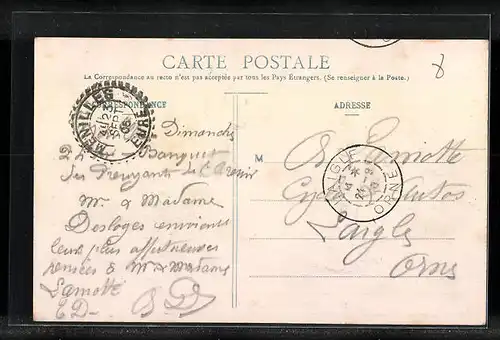 CARTE POSTALE
La Correspondance au recto n'est pas acceptée par tous les Pays Étrangers. (Se renseigner à la Poste.)
CORRESPONDANCE
ADRESSE
MENILLES
23
SEPT
06
EURE
Dimanche
Banquet
de l'Avenir
Mr & Madame
Desloges envoient
leurs plus affectueuses
pensées à Mr & Madame
Lamotte
E D
M
Lamotte
Cycles Autos
Laigle
Orne
LAIGLE
ORNE
8